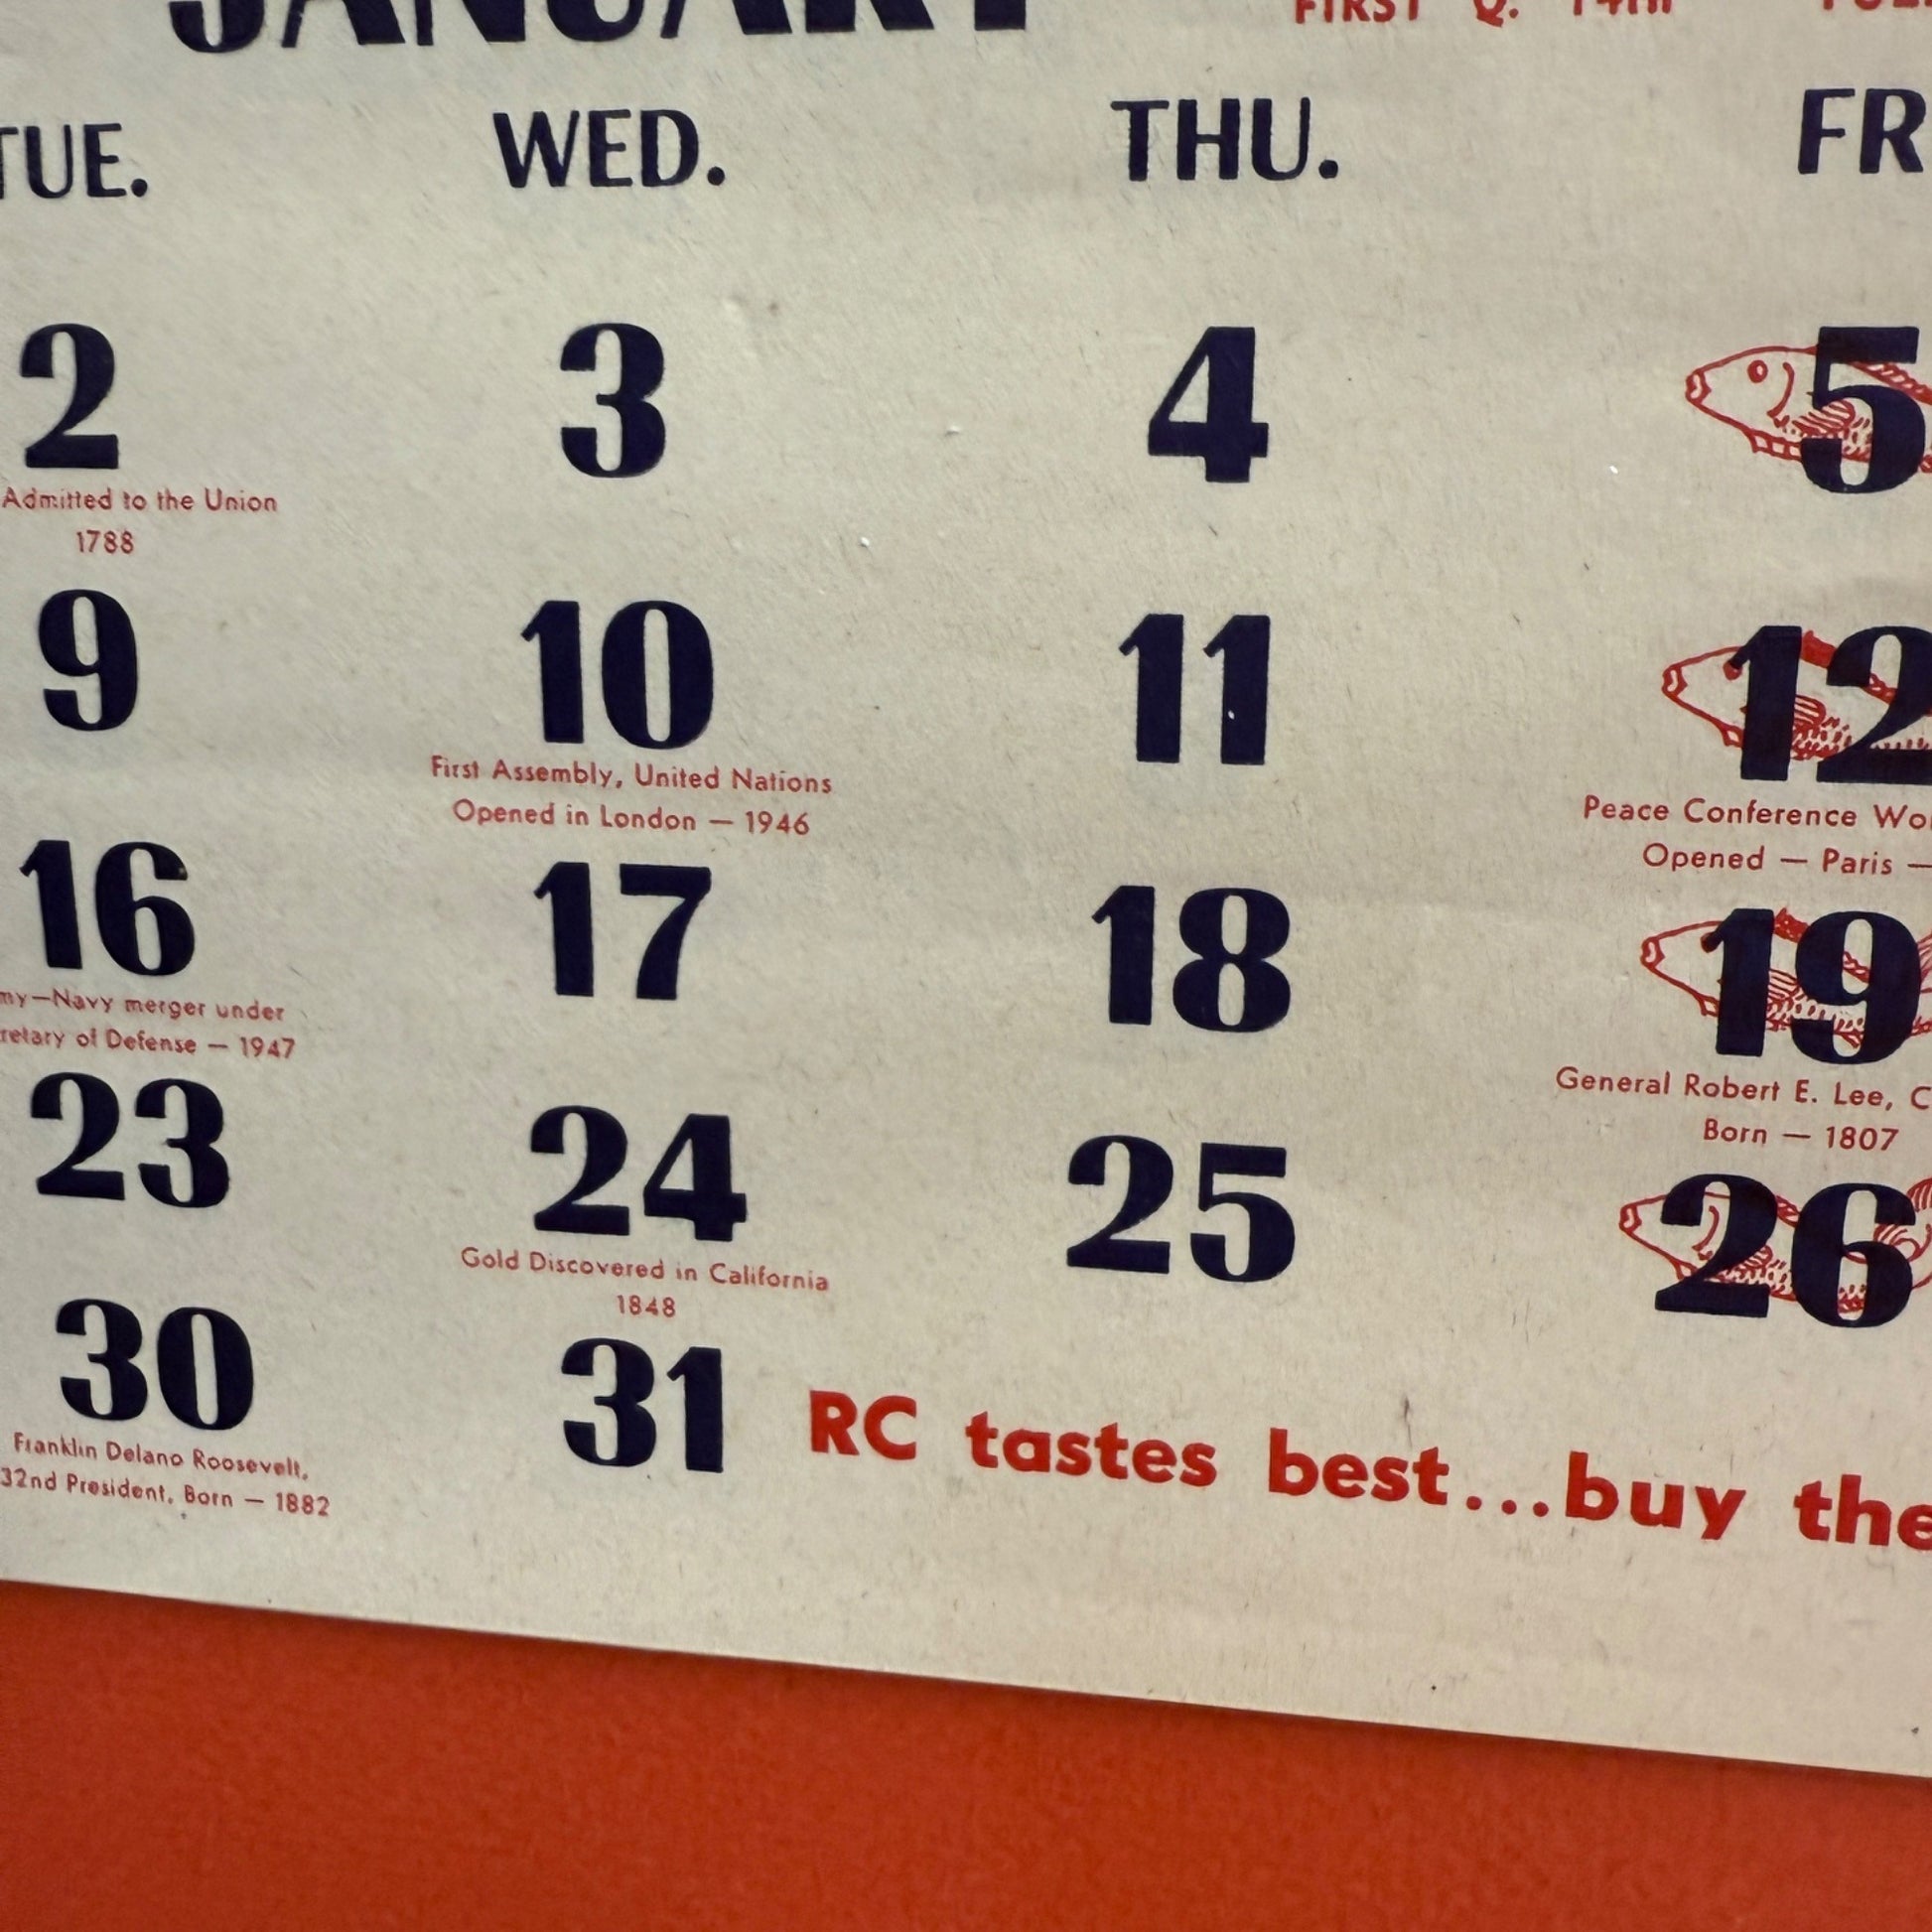 JANUARY
FIRST Q. 14th
TUE. WED. THU.
2 3 4 5
Admitted to the Union
1788
9 10 11 12
First Assembly, United Nations
Opened in London — 1946
Peace Conference
Opened — Paris —
16 17 18 19
Navy merger under
of Defense — 1947
General Robert E. Lee,
Born — 1807
23 24 25 26
Gold Discovered in California
1848
30 31
Franklin Delano Roosevelt,
32nd President, Born — 1882
RC tastes best...buy the